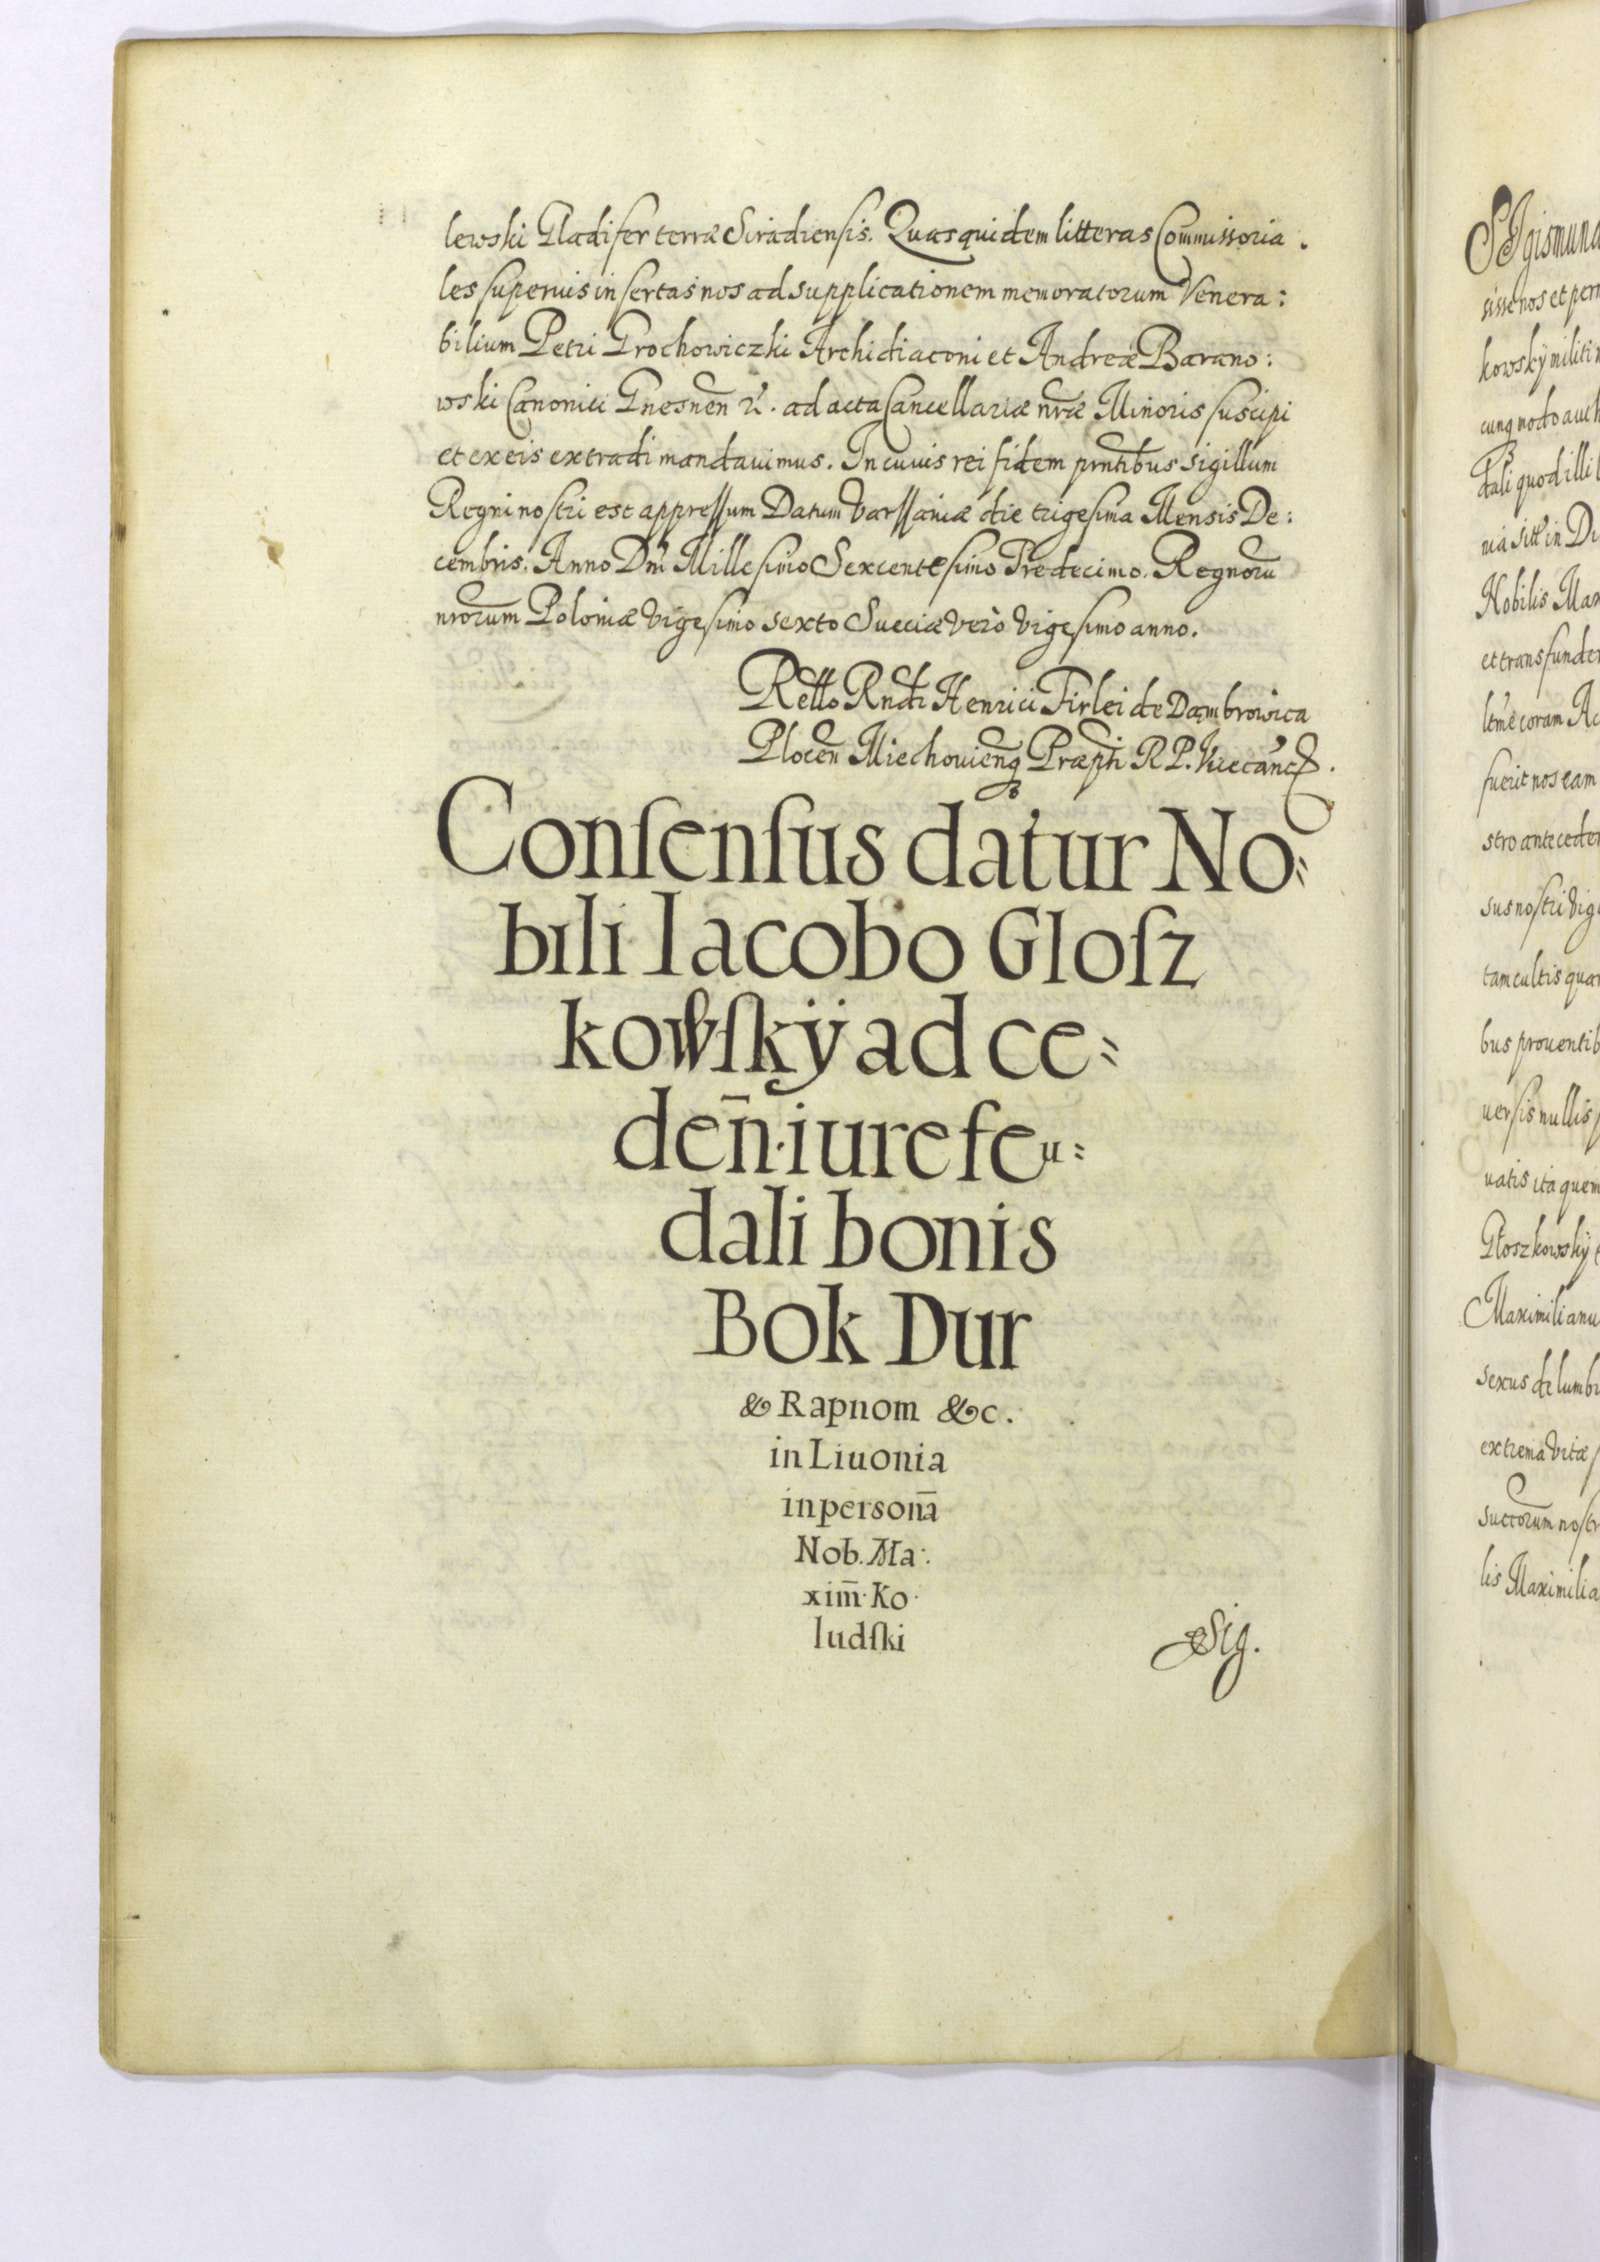 lewski Gladifer terræ Siradiensis. Quas quidem litteras Com̄missoria.
les superius insertas nos ad supplicationem memoratorum Venera:
bilium Petri Grochowiczki Archidiaconi et Andreæ Barano:
wski Canonici Gnesnen̄ ad acta Cancellariæ nr̄æ Minoris suscipi
et ex eis extradi mandauimus. In cuius rei fidem prn̄tibus sigillum
Regni nostri est appressum Datum Varssauiæ die trigesima Mensis De:
cembris. Anno Dnī Millesimo Sexcentesimo Tredecimo. Regnorū
nrōrum Poloniæ vigesimo sexto Sueciæ verò vigesimo anno.
Rel̄tio Rndi Henrici Firlei de Dąmbrowica
Plocen̄ Miechouien̄q Præpti R. P. Vicecanc
Conſenſus datur No:
bili Iacobo Gloſz
kowſkÿ ad ce:
den̄. iure feu:
dali bonis
Bok Dur
& Rapnom &c.
in Liuonia
in personā
Nob. Ma:
xim̄. Ko
ludſki
Sig.
SIgismund
sisse nos et per
kowskÿ militi
cunq modo auth
dali quod illi
nia sitt in
Nobilis Max
et transfunder
coram Ac
fuerit nos eam
stro anteceden
sus nostri vig
tam cultis quam
bus prouentib
uersis nullis
uatis ita quem
Głoszkowskÿ
Maximilianu
sexus de lumbi
extrema vitæ
succorum nostr
lis Maximilia